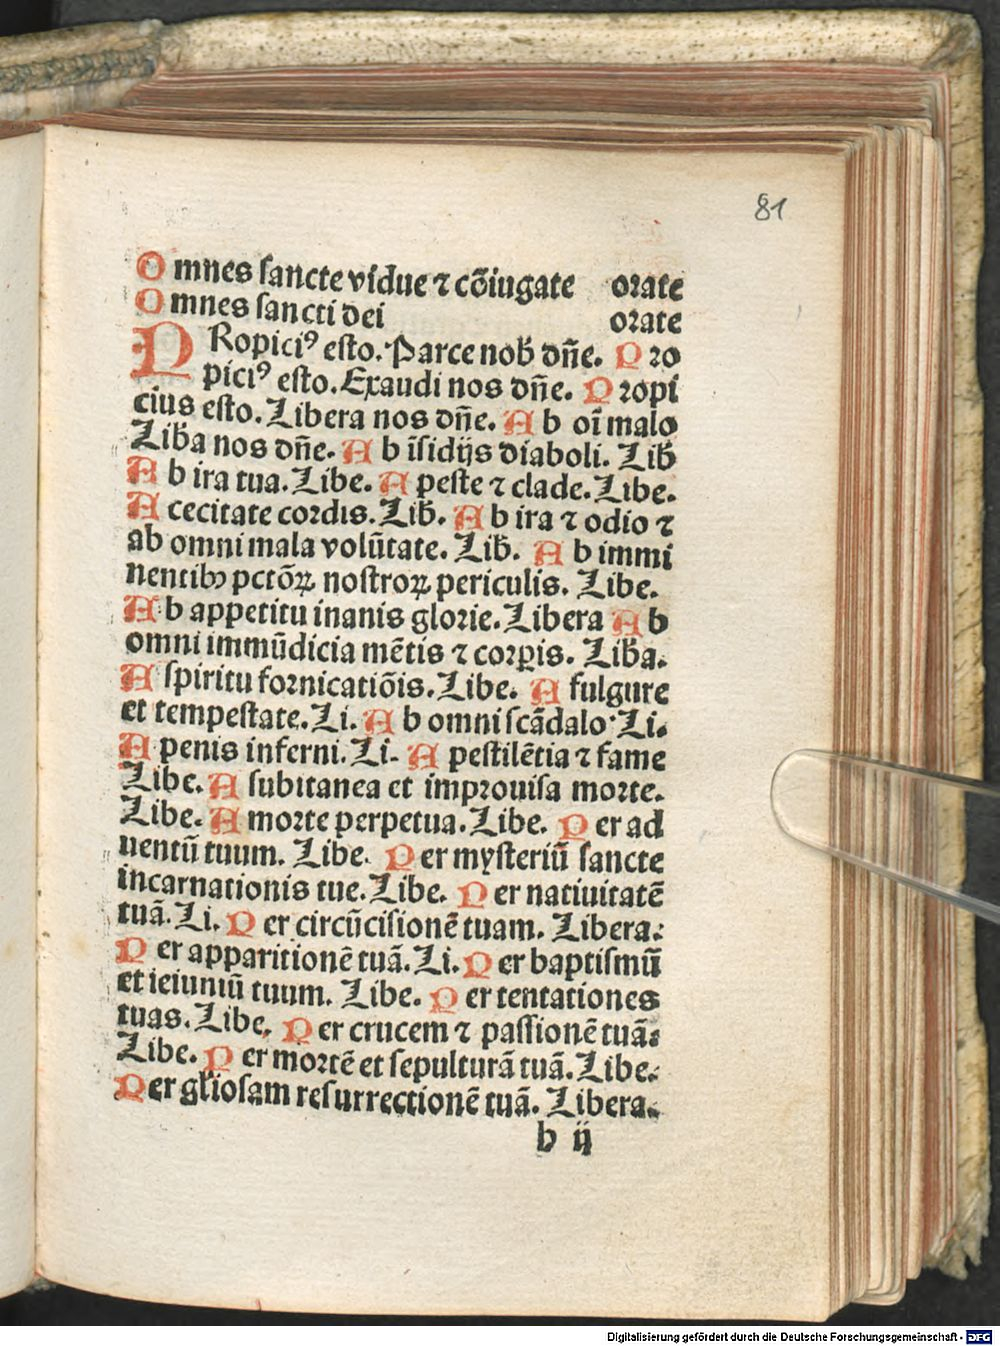 81
Omnes sancte vidue ⁊ cõiugate orate
Omnes sancti dei orate
PRopiciꝰ esto. Parce nob̃ dñe. Pro
piciꝰ esto. Exaudi nos dñe. Propi
cius esto. Libera nos dñe. Ab oĩ malo
Lib̃a nos dñe. Ab ĩsidijs diaboli. Lib̃
Ab ira tua. Libe. A peste ⁊ clade. Libe.
A cecitate cordis. Lib̃. Ab ira ⁊ odio ⁊
ab omni mala volũtate. Lib̃. Ab immi
nentibꝫ pctõꝝ nostroꝝ periculis. Libe.
Ab appetitu inanis glorie. Libera Ab
omni immũdicia mẽtis ⁊ corꝑis. Lib̃a.
A spiritu fornicatiõis. Libe. A fulgure
et tempestate. Li. Ab omni scãdalo. Li.
A penis inferni. Li. A pestilẽtia ⁊ fame
Libe. A subitanea et improuisa morte.
Libe. A morte perpetua. Libe. Per ad
uentũ tuum. Libe. Per mysteriũ sancte
incarnationis tue. Libe. Per natiuitatẽ
tuã. Li. Per circũcisionẽ tuam. Libera.
Per apparitionẽ tuã. Li. Per baptismũ
et ieiuniũ tuum. Libe. Per tentationes
tuas. Libe. Per crucem ⁊ passionẽ tuã.
Libe. Per mortẽ et sepulturã tuã. Libe.
Per gl̃iosam resurrectionẽ tuã. Libera.
b ij
Digitalisierung gefördert durch die Deutsche Forschungsgemeinschaft - DFG